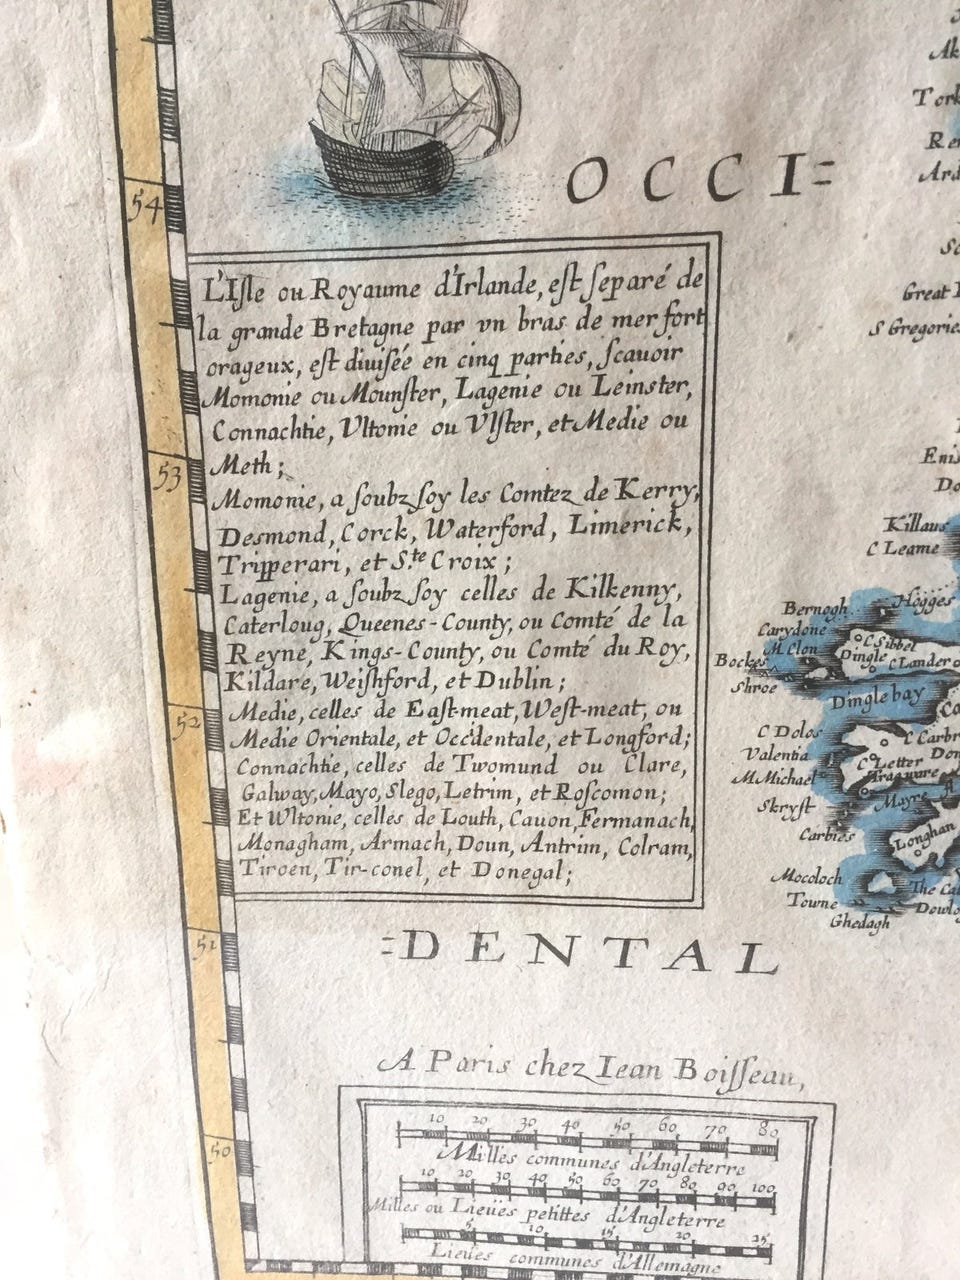 54
OCCI=
L'Isle ou Royaume d'Irlande, est separé de
la grande Bretagne par vn bras de mer fort
orageux, est diuisée en cinq parties, scauoir
Momonie ou Mounster, Lagenie ou Leinster,
Connachtie, Vltonie ou Vlster, et Medie ou
Meth;
Momonie, a soubz soy les Comtez de Kerry,
Desmond, Corck, Waterford, Limerick,
Tripperari, et S.te Croix;
Lagenie, a soubz soy celles de Kilkenny,
Caterloug, Queenes-County, ou Comté de la
Reyne, Kings-County, ou Comté du Roy,
Kildare, Weishford, et Dublin;
Medie, celles de East-meat, West-meat, ou
Medie Orientale, et Occidentale, et Longford;
Connachtie, celles de Twomund ou Clare,
Galway, Mayo, Slego, Letrim, et Roscomon;
Et Wltonie, celles de Louth, Cauon, Fermanach,
Monagham, Armach, Doun, Antrim, Colram,
Tiroen, Tir-conel, et Donegal;
53
52
51
50
=DENTAL
A Paris chez Iean Boisseau,
10 20 30 40 50 60 70 80
Milles communes d'Angleterre
10 20 30 40 50 60 70 80 90 100
Milles ou Lieües petittes d'Angleterre
5 10 15 20 25
Lieues communes d'Allemagne
Great
S Gregorie
Killaus
C Leame
Hogges
Bernogh
Carydone
M Clon
C Sibbel
Dingle
C Lander
Bockes
Shroe
Dingle bay
C Dolos
Valentia
C Letter
M Michael
Mayre
Skryst
Carbies
Longhan
Mocoloch
Towne
Ghedagh